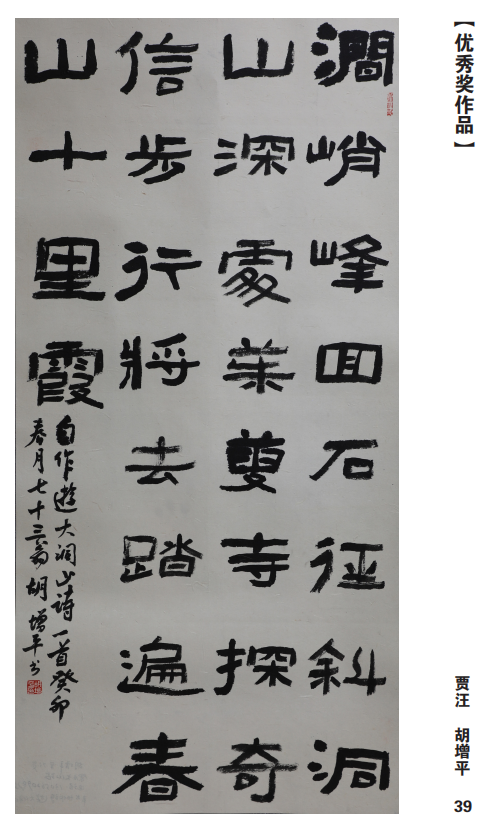 【优秀奖作品】
澗峭峰回石徑斜洞
山深處茱萸寺探奇
信步行將去踏遍春
山十里霞
自作遊大洞山詩一首癸卯
春月七十三翁胡增平书
贾汪 胡增平
39